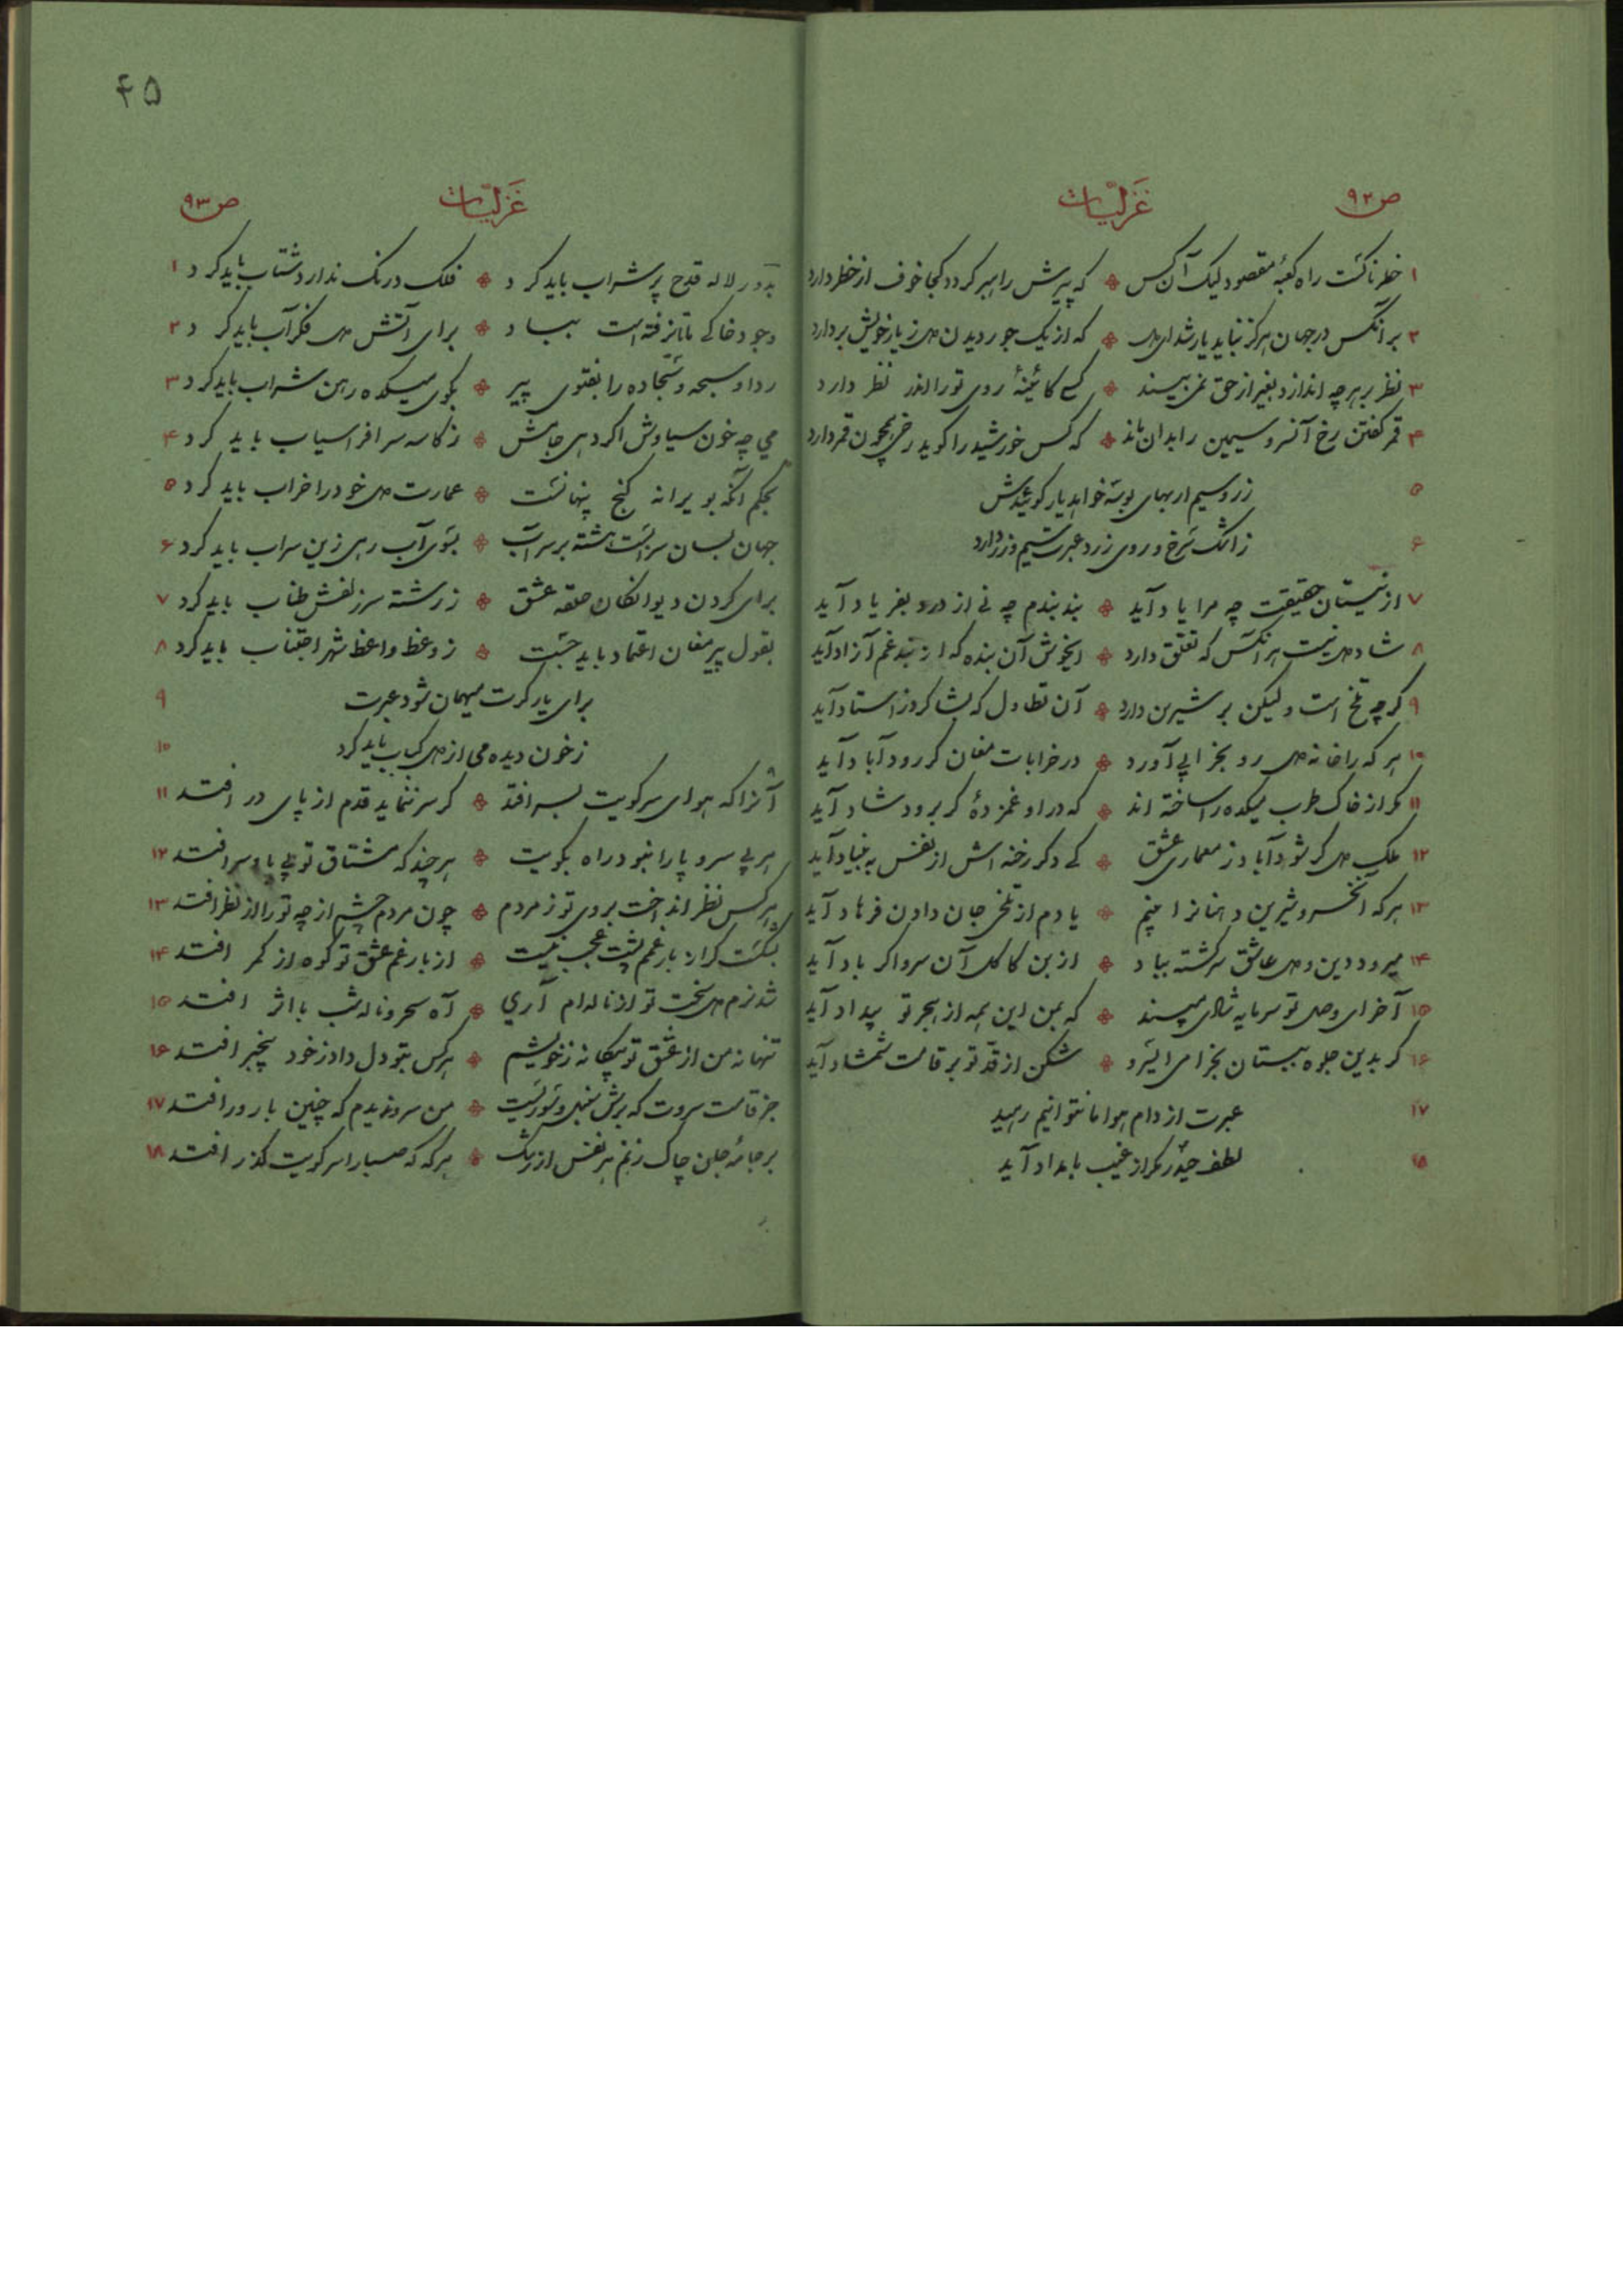 ص ۹۲
غزلیات
۱ خطرناکست راه کعبهٔ مقصود لیک آن کس که پیرش راهبر گردد کجا خوف از خطر دارد
۲ بر آنکس در جهان هرگز نباید یار شد ای دل که از یک جور دیدن دل ز یار خویش بردارد
۳ نظر بر هر چه اندازد بغیر از حق نمی بیند کسی کائینهٔ روی تو را اندر نظر دارد
۴ قمر گفتن رخ آنسرو سیمین را بدان ماند که کس خورشید را گوید رخی همچون قمر دارد
۵ زر و سیم ار بهای بوسه خواهد یار گوئیدش
۶ ز اشک سرخ و روی زرد عبرت سیم و زر دارد
۷ از نیستان حقیقت چه مرا یاد آید بند بندم چه نی از درد بفریاد آید
۸ شاد دل نیست هر آنکس که تعلق دارد ایخوش آن بنده که از بند غم آزاد آید
۹ گرچه تلخ است ولیکن بر شیرین دارد آن تطاول که بشاگرد ز استاد آید
۱۰ هر که را خانه دل رو بخرابی آورد در خرابات مغان گر رود آباد آید
۱۱ مگر از خاک طرب میکده را ساخته اند که در او غمزدهٔ گر برود شاد آید
۱۲ ملک دل گر شود آباد ز معماری عشق کی دگر رخنه اش از نفس به بنیاد آید
۱۳ هر که آنخسرو شیرین دهنانرا بینم یادم از تلخی جان دادن فرهاد آید
۱۴ میرود دین و دل عاشق سرگشته بباد از بن کاکل آن سرو اگر باد آید
۱۵ آخر ای وصل تو سرمایه شادی مپسند که بمن این همه از هجر تو بیداد آید
۱۶ گر بدین جلوه ببستان بخرامی ایسرو شکن از قد تو بر قامت شمشاد آید
۱۷ عبرت از دام هوا ما نتوانیم رهید
۱۸ لطف حیدر مگر از غیب بامداد آید
۴۵
غزلیات
ص ۹۳
بدور لاله قدح پر شراب باید کرد فلک درنک ندارد شتاب باید کرد ۱
وجود خاکی ما تا نرفته است بباد برای آتش دل فکر آب باید کرد ۲
ردا و سبحه و سجاده را بفتوی پیر بکوی میکده رهن شراب باید کرد ۳
می چه خون سیاوش اگر دهی جامش ز کاسه سر افراسیاب باید کرد ۴
بحکم آنکه بویرانه گنج پنهانست عمارت دل خود را خراب باید کرد ۵
جهان بسان سرابست هشته بر سر آب بسوی آب رهی زین سراب باید کرد ۶
برای کردن دیوانکان حلقه عشق ز رشته سر زلفش طناب باید کرد ۷
بقول پیر مغان اعتماد باید جست ز وعظ واعظ شهر اجتناب باید کرد ۸
برای یار گرت میهمان شود عبرت ۹
ز خون دیده می از دل کباب باید کرد ۱۰
آنرا که هوای سر کویت بسر افتد گر سر ننماید قدم از پای در افتد ۱۱
هر بی سر و پا را نبود راه بکویت هر چند که مشتاق تو بی پا و سر افتد ۱۲
هر کس نظر انداخت بروی تو ز مردم چون مردم چشم از چه تو را از نظر افتد ۱۳
بشکست گر از بار غمم پشت عجب نیست از بار غم عشق تو کوه از کمر افتد ۱۴
شد نرم دل سخت تو از ناله ام آری آه سحر و ناله شب با اثر افتد ۱۵
تنها نه من از عشق تو بیگانه ز خویشم هر کس بتو دل داد ز خود بیخبر افتد ۱۶
جز قامت سروت که برش سنبل و سوریست من سرو ندیدم که چنین بارور افتد ۱۷
بر جامهٔ جان چاک زنم هر نفس از رشک هر گه که صبا را سر کویت گذر افتد ۱۸